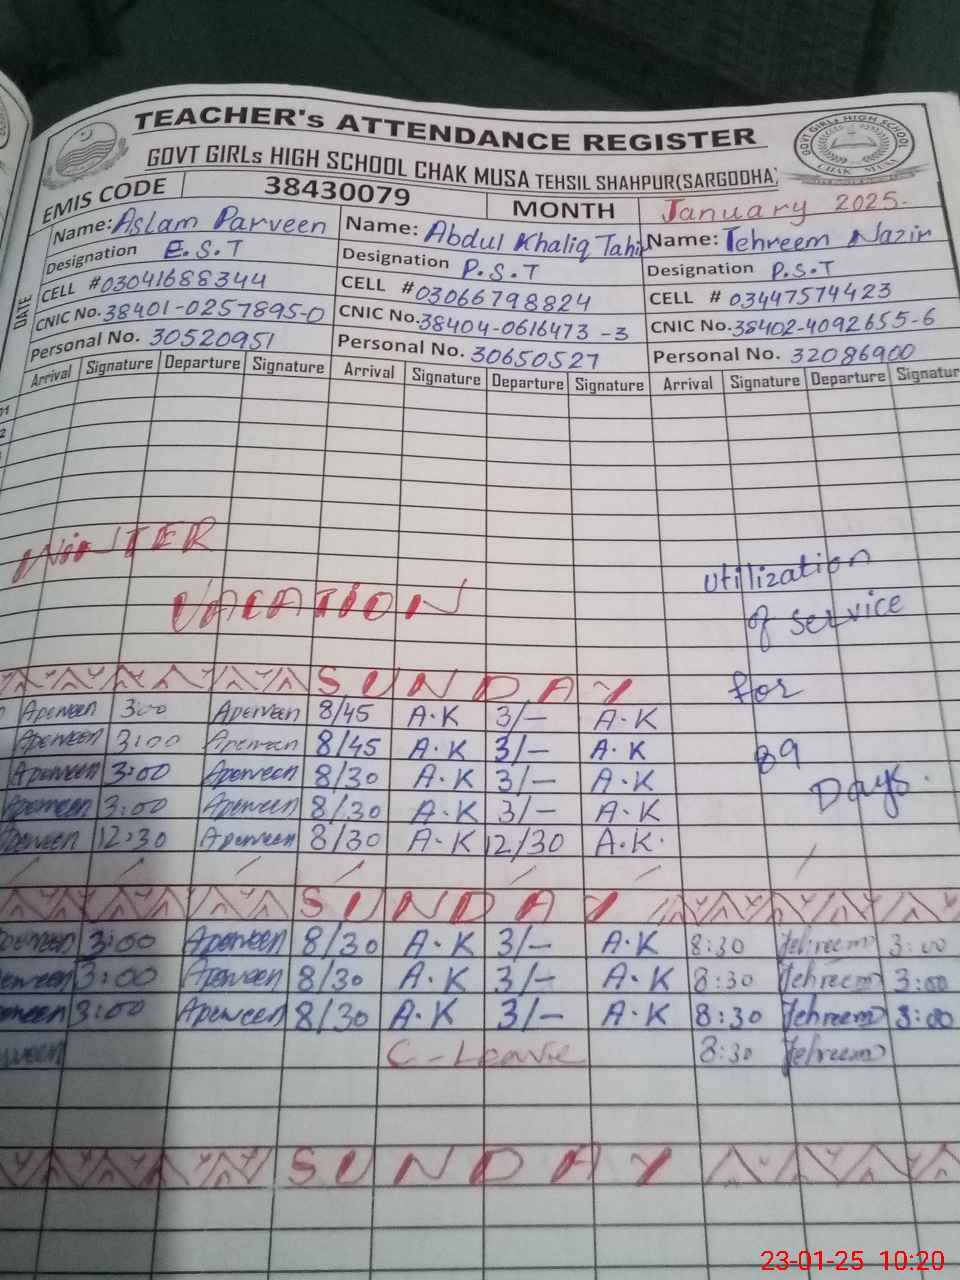 TEACHER's ATTENDANCE REGISTER
GOVT GIRLS HIGH SCHOOL
CHAK MUSA
GOVT GIRLs HIGH SCHOOL CHAK MUSA TEHSIL SHAHPUR(SARGODHA)
EMIS CODE 38430079 MONTH January 2025.
DATE
Name: Aslam Parveen Name: Abdul Khaliq Tahir Name: Tehreem Nazir
Designation E.S.T Designation P.S.T Designation P.S.T
CELL #03041688344 CELL #03066798824 CELL # 03447574423
CNIC No. 38401-0257895-0 CNIC No. 38404-0616473-3 CNIC No. 38402-4092655-6
Personal No. 30520951 Personal No. 30650527 Personal No. 32086900
Arrival Signature Departure Signature Arrival Signature Departure Signature Arrival Signature Departure Signatur
01
2
WiNTER
VACATION
utilization
of service
for
89
Days.
SUNDAY
Aperveen 3:00 Aperveen 8/45 A.K 3/- A.K
Aperveen 3:00 Aperveen 8/45 A.K 3/- A.K
Aperveen 3:00 Aperveen 8/30 A.K 3/- A.K
Aperveen 3:00 Aperveen 8/30 A.K 3/- A.K
Aperveen 12:30 Aperveen 8/30 A.K 12/30 A.K.
SUNDAY
3:00 Aperveen 8/30 A.K 3/- A.K 8:30 Tehreem 3:00
3:00 Aperveen 8/30 A.K 3/- A.K 8:30 Tehreem 3:00
3:00 Aperveen 8/30 A.K 3/- A.K 8:30 Tehreem 3:00
C-Leave 8:30 Tehreem
SUNDAY
23-01-25 10:20